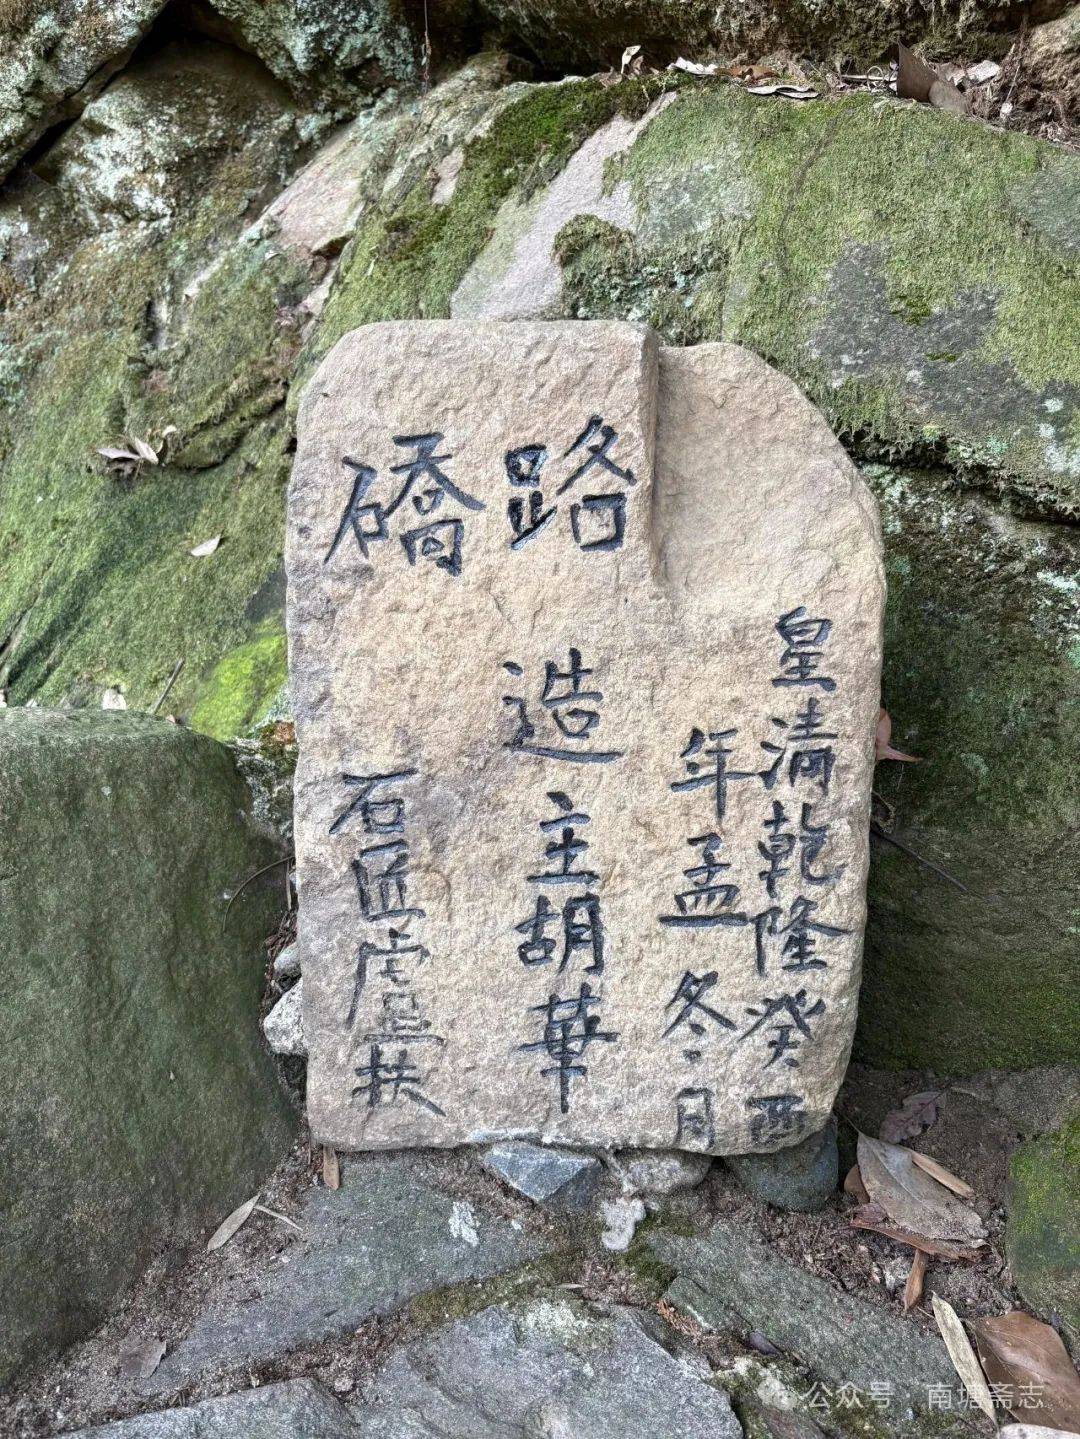 路礄
皇清乾隆癸酉
年孟冬月
造主胡華
石匠盧扶
公众号·南塘斋志